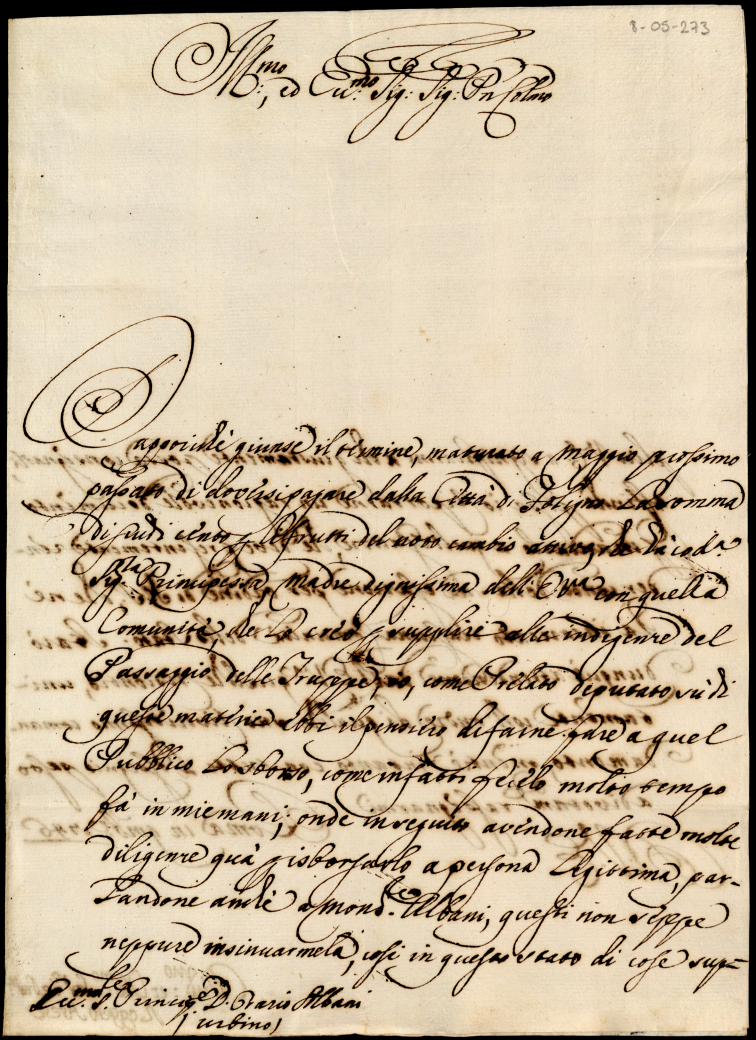 8-05-273
Ill:mo, ed Ecc:mo Sig: Sig: Pn Colmo
Dappoiché giunse il termine, maturato a Maggio prossimo
passato di doversi pagare dalla Città di Foligno La somma
di scudi cento p i frutti del noto cambio attivo, che hà cod:a
Sig:ra Principessa, madre degnissima dell' E.Vra con quella
Comunità, che Lo creò p supplire alle indigenze del
Passaggio delle Truppe, io, come Prelato deputato sù di
queste materie ebbi il pensiero di farne fare a quel
Pubblico Lo sborso, come infatti fecelo molto tempo
fà in mie mani; onde in seguito avendone fatte molte
diligenze quà p isborsarlo a persona Legittima, par-
Landone anche a Mons:re Albani, questi non seppe
neppure insinuarmela, così in questo stato di cose sup=
Ecc:mo S: Principe D. Orazio Albani
(Urbino)